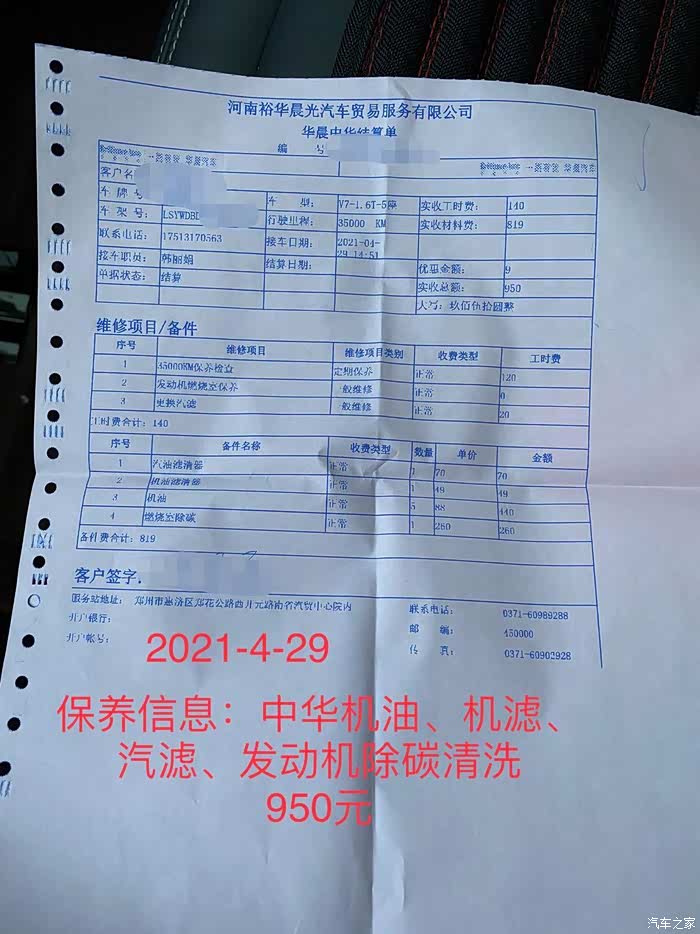 河南裕华晨光汽车贸易服务有限公司
华晨中华结算单
编 号
一路尊荣 华晨汽车 一路尊荣 华晨汽车
客户名
车牌号 车 型: V7-1.6T-5座 实收工时费: 140
车架号: LSYWDBL 行驶里程: 35000 KM 实收材料费: 819
联系电话: 17513170563 接车日期: 2021-04-29 14:51
接车职员: 韩丽娟 结算日期: 优惠金额: 9
单据状态: 结算 实收总额: 950
大写: 玖佰伍拾圆整
维修项目/备件
序号 维修项目 维修项目类别 收费类型 工时费
1 35000KM保养检查 定期保养 正常 120
2 发动机燃烧室保养 一般维修 正常 0
3 更换汽滤 一般维修 正常 20
工时费合计: 140
序号 备件名称 收费类型 数量 单价 金额
1 汽油滤清器 正常 1 70 70
2 机油滤清器 正常 1 49 49
3 机油 正常 5 88 440
4 燃烧室除碳 正常 1 260 260
备件费合计: 819
客户签字.
服务站地址: 郑州市惠济区郑花公路西开元路南省汽贸中心院内 联系电话: 0371-60989288
开户银行: 邮 编: 450000
开户帐号: 传 真: 0371-60902928
2021-4-29
保养信息：中华机油、机滤、
汽滤、发动机除碳清洗
950元
汽车之家